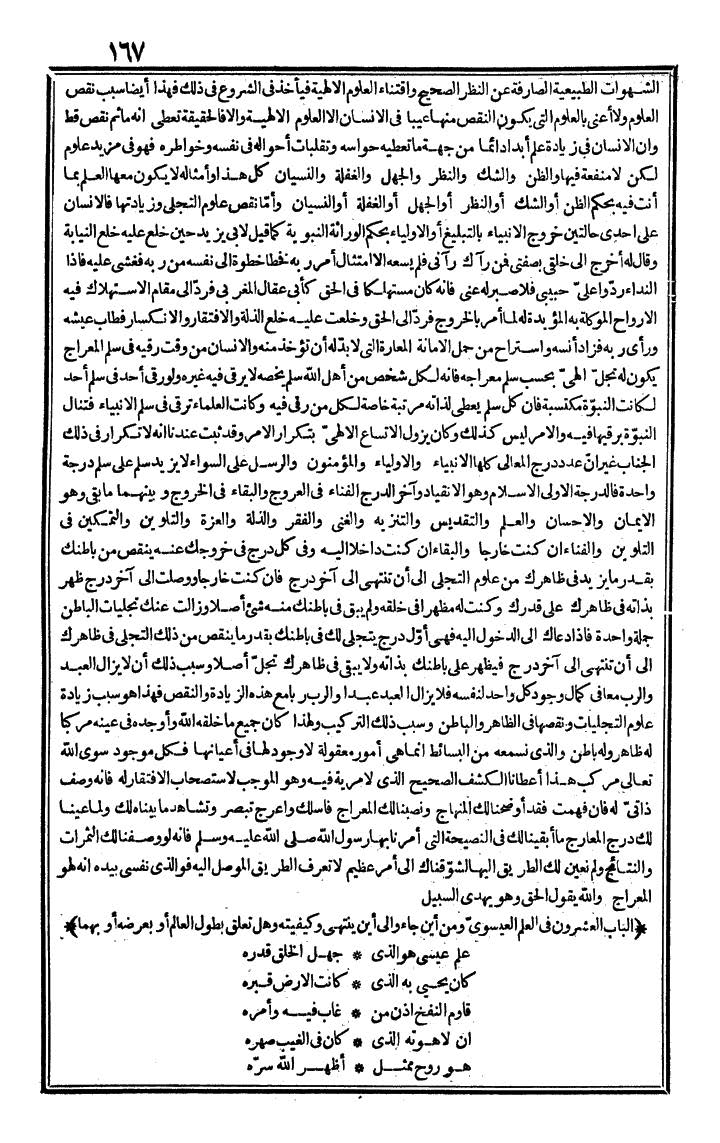 ١٦٧
الشهوات الطبيعية الصارفة عن النظر الصحيح واقتناء العلوم الالهية فيأخذ فى الشروع فى ذلك فهذا أيضا سبب نقص
العلوم ولا أعنى بالعلوم التى يكون النقص منها عيبا فى الانسان الا العلوم الالهية والا فالحقيقة تعطى انه مائم نقص قط
وان الانسان فى زيادة علم أبدا دائما من جهة ما تعطيه حواسه وتقلبات أحواله فى نفسه وخواطره فهو فى مزيد علوم
لكن لا منفعة فيها والظن والشك والنظر والجهل والغفلة والنسيان كل هذا وأمثاله لا يكون معها العلم بما
أنت فيه بحكم الظن أو الشك أو النظر أو الجهل أو الغفلة أو النسيان وأما نقص علوم التجلى وزيادتها فالانسان
على احدى حالتين خروج الانبياء بالتبليغ أو الاولياء بحكم الوراثة النبوية كما قيل لابى يزيد حين خلع عليه خلع النيابة
وقال له أخرج الى خلقى بصفتى فمن رآك رآنى فلم يسعه الا امتثال أمر ربه فخطا خطوة الى نفسه من ربه فغشى عليه فاذا
النداء ردّوا علىّ حبيبى فلا صبر له عنى فانه كان مستهلكا فى الحق كأبى عقال المغربى فردّ الى مقام الاستهلاك فيه
الارواح الموكلة به المؤيدة له لما أمر بالخروج فردّ الى الحق وخلعت عليه خلع الذلة والافتقار والانكسار فطاب عيشه
ورأى ربه فزاد أنسه واستراح من حمل الامانة المعارة التى لا بدّ له أن تؤخذ منه والانسان من وقت رقيه فى سلم المعراج
يكون له تجلّ الهىّ بحسب سلم معراجه فانه لكل شخص من أهل الله سلم يخصه لا يرقى فيه غيره ولو رقى أحد فى سلم أحد
لكانت النبوّة مكتسبة فان كل سلم يعطى لذاته مرتبة خاصة لكل من رقى فيه وكانت العلماء ترقى فى سلم الانبياء فتنال
النبوّة برقيها فيه والامر ليس كذلك وكان يزول الاتساع الالهىّ بتكرار الامر وقد ثبت عندنا انه لا تكرار فى ذلك
الجناب غير انّ عدد درج المعالى كلها الانبياء والاولياء والمؤمنون والرسل على السواء لا يزيد سلم على سلم درجة
واحدة فالدرجة الاولى الاسلام وهو الانقياد وآخر الدرج الفناء فى العروج والبقاء فى الخروج وبينهما ما بقى وهو
الايمان والاحسان والعلم والتقديس والتنزيه والغنى والفقر والذلة والعزة والتلوين والتمكين فى
التلوين والفناء ان كنت خارجا والبقاء ان كنت داخلا اليه وفى كل درج فى خروجك عنه ينقص من باطنك
بقدر ما يزيد فى ظاهرك من علوم التجلى الى أن تنتهى الى آخر درج فان كنت خارجا ووصلت الى آخر درج ظهر
بذاته فى ظاهرك على قدرك وكنت له مظهرا فى خلقه ولم يبق فى باطنك منه شئ أصلا وزالت عنك تجليات الباطن
جملة واحدة فاذا دعاك الى الدخول اليه فهى أوّل درج يتجلى لك فى باطنك بقدر ما ينقص من ذلك التجلى فى ظاهرك
الى أن تنتهى الى آخر درج فيظهر على باطنك بذاته ولا يبقى فى ظاهرك تجلّ أصلا وسبب ذلك أن لا يزال العبد
والرب معا فى كمال وجود كل واحد لنفسه فلا يزال العبد عبدا والرب ربا مع هذه الزيادة والنقص فهذا هو سبب زيادة
علوم التجليات ونقصها فى الظاهر والباطن وسبب ذلك التركيب ولهذا كان جميع ما خلقه الله وأوجده فى عينه مركبا
له ظاهر وله باطن والذى نسمعه من البسائط انما هى أمور معقولة لا وجود لها فى أعيانها فكل موجود سوى الله
تعالى مركب هذا أعطانا الكشف الصحيح الذى لا مرية فيه وهو الموجب لاستصحاب الافتقار له فانه وصف
ذاتىّ له فان فهمت فقد أوضحنا لك المنهاج ونصبنا لك المعراج فاسلك واعرج تبصر وتشاهد ما بيناه لك ولما عينا
لك درج المعارج ما أبقينا لك فى النصيحة التى أمرنا بها رسول الله صلى الله عليه وسلم فانه لو وصفنا لك الثمرات
والنتائج ولم نعين لك الطريق اليها لشوّقناك الى أمر عظيم لا تعرف الطريق الموصل اليه فوالذى نفسى بيده انه لهو
المعراج والله يقول الحق وهو يهدى السبيل
﴿الباب العشرون فى العلم العيسوىّ ومن أين جاء والى أين ينتهى وكيفيته وهل تعلق بطول العالم أو بعرضه أو بهما﴾
علم عيسى هو الذى * جهل الخلق قدره
كان يحيى به الذى * كانت الارض قبره
قاوم النفخ اذن من * غاب فيه وأمره
ان لاهوته الذى * كان فى الغيب صهره
هو روح ممثل * أظهر الله سرّه